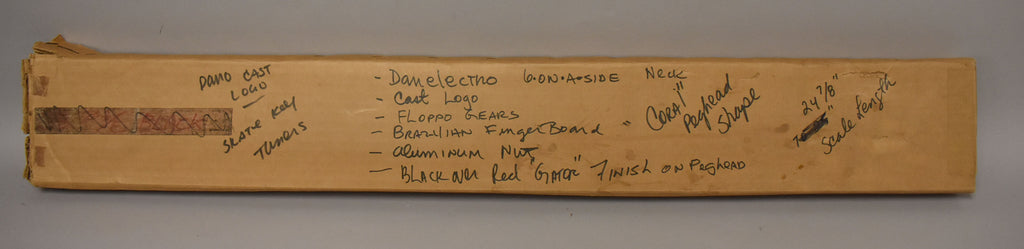 DANO CAST
LOGO
SKATE KEY
TUNERS
- Danelectro 6-ON-A-SIDE Neck
- Cast Logo
- FLOPPO GEARS
- BRAZILIAN FingerBoard
- aluminum Nut
- BLACK over Red "GATOR" FINISH ON Peghead
"CORAL"
Peghead
Shape
24 7/8"
Scale Length